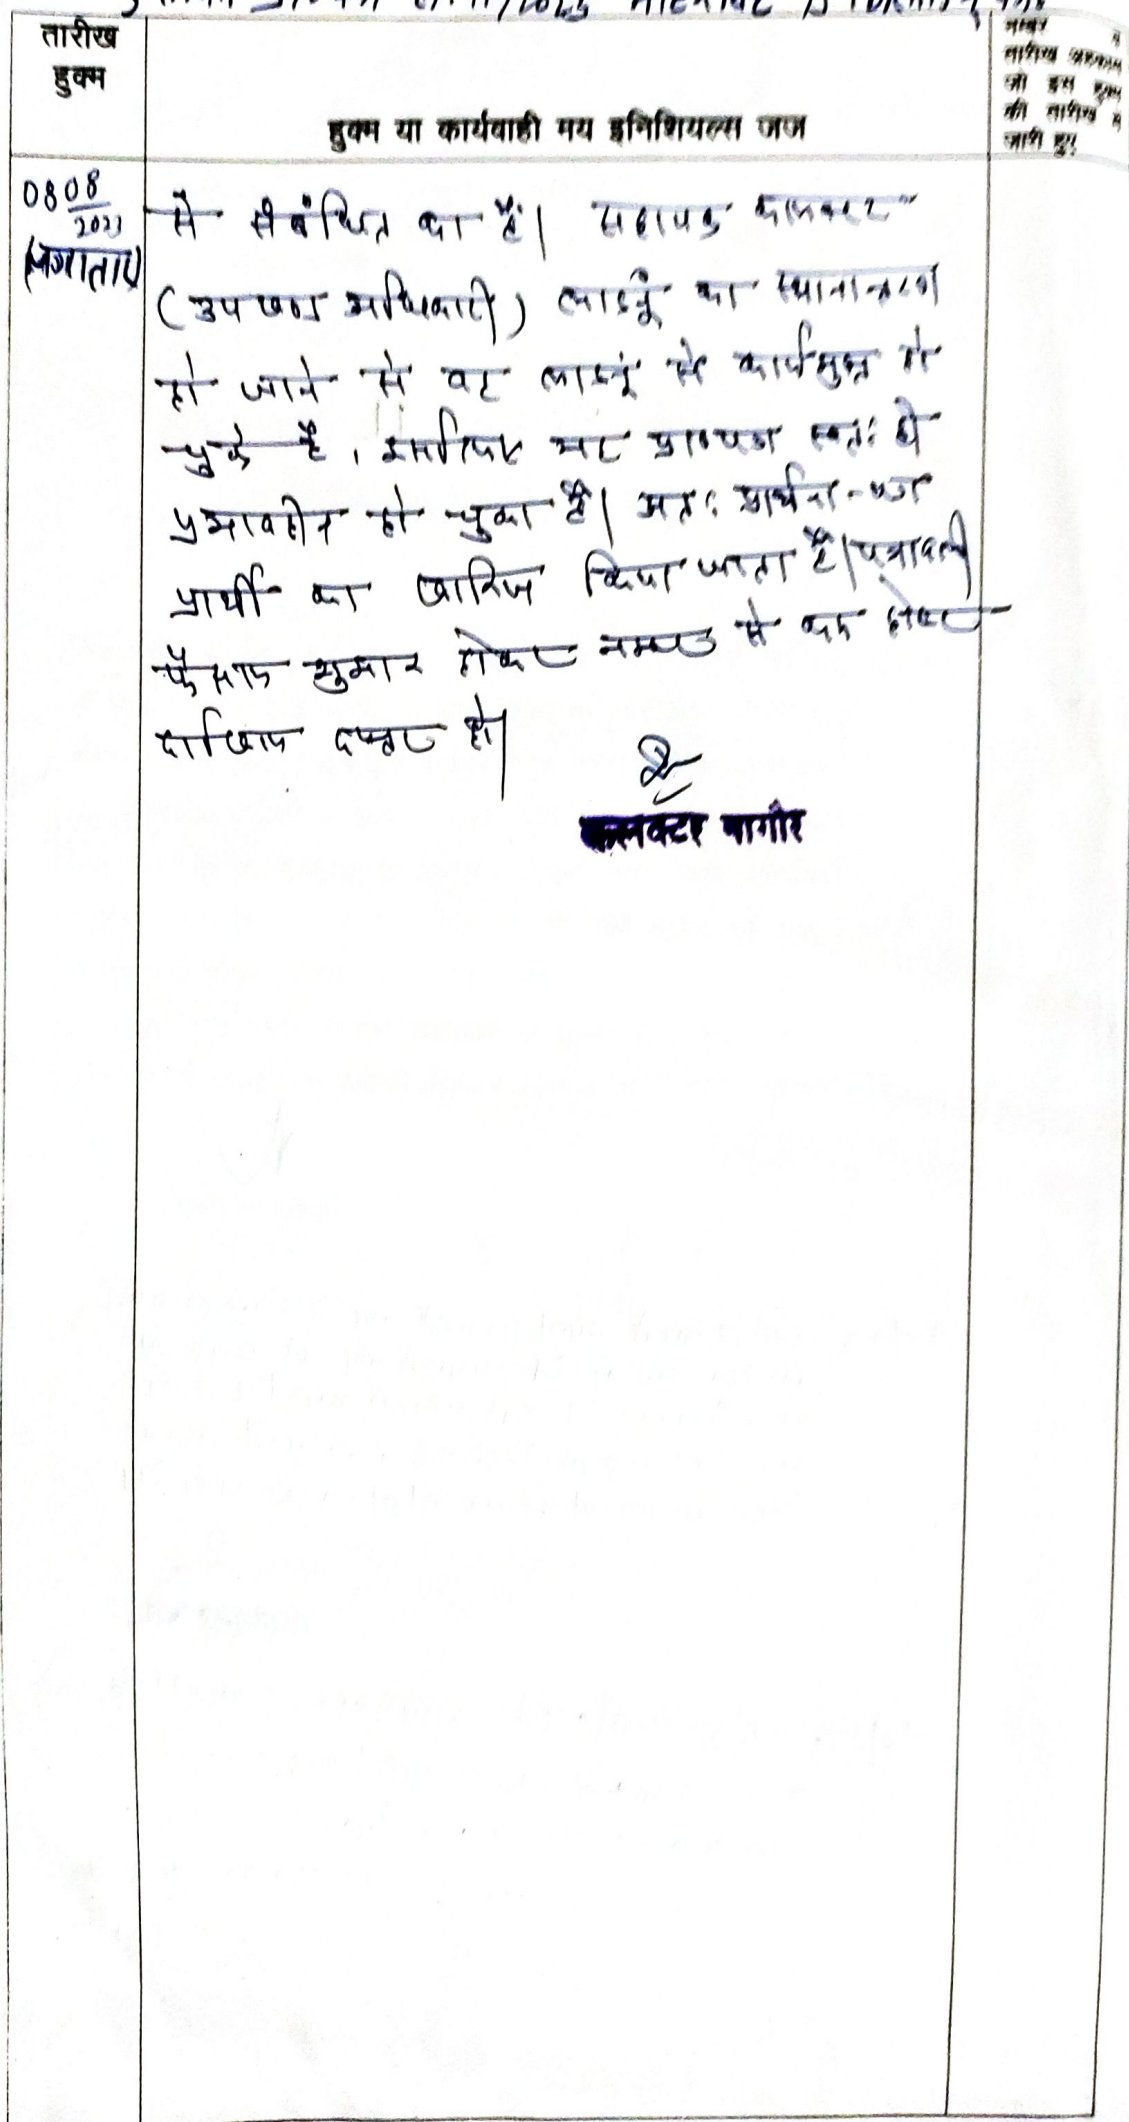 तारीख
हुक्म
हुक्म या कार्यवाही मय इनिशियल्स जज
नम्बर व
तारीख अहकाम
जो इस हुक्म
की तारीख में
जारी हुए
08 08
2023
(लगातार)
से संबंधित का है। सहायक कलक्टर
(उपखण्ड अधिकारी) लाडनूं का स्थानान्तरण
हो जाने से वह लाडनूं से कार्यमुक्त हो
चुके है, इसलिए यह प्रार्थना पत्र स्वतः ही
प्रभावहीन हो चुका है। अतः प्रार्थना-पत्र
प्रार्थी का खारिज किया जाता है। पत्रावली
फैसल शुमार होकर नम्बर से कम होकर
दाखिल दफ्तर हो।
कलक्टर नागौर